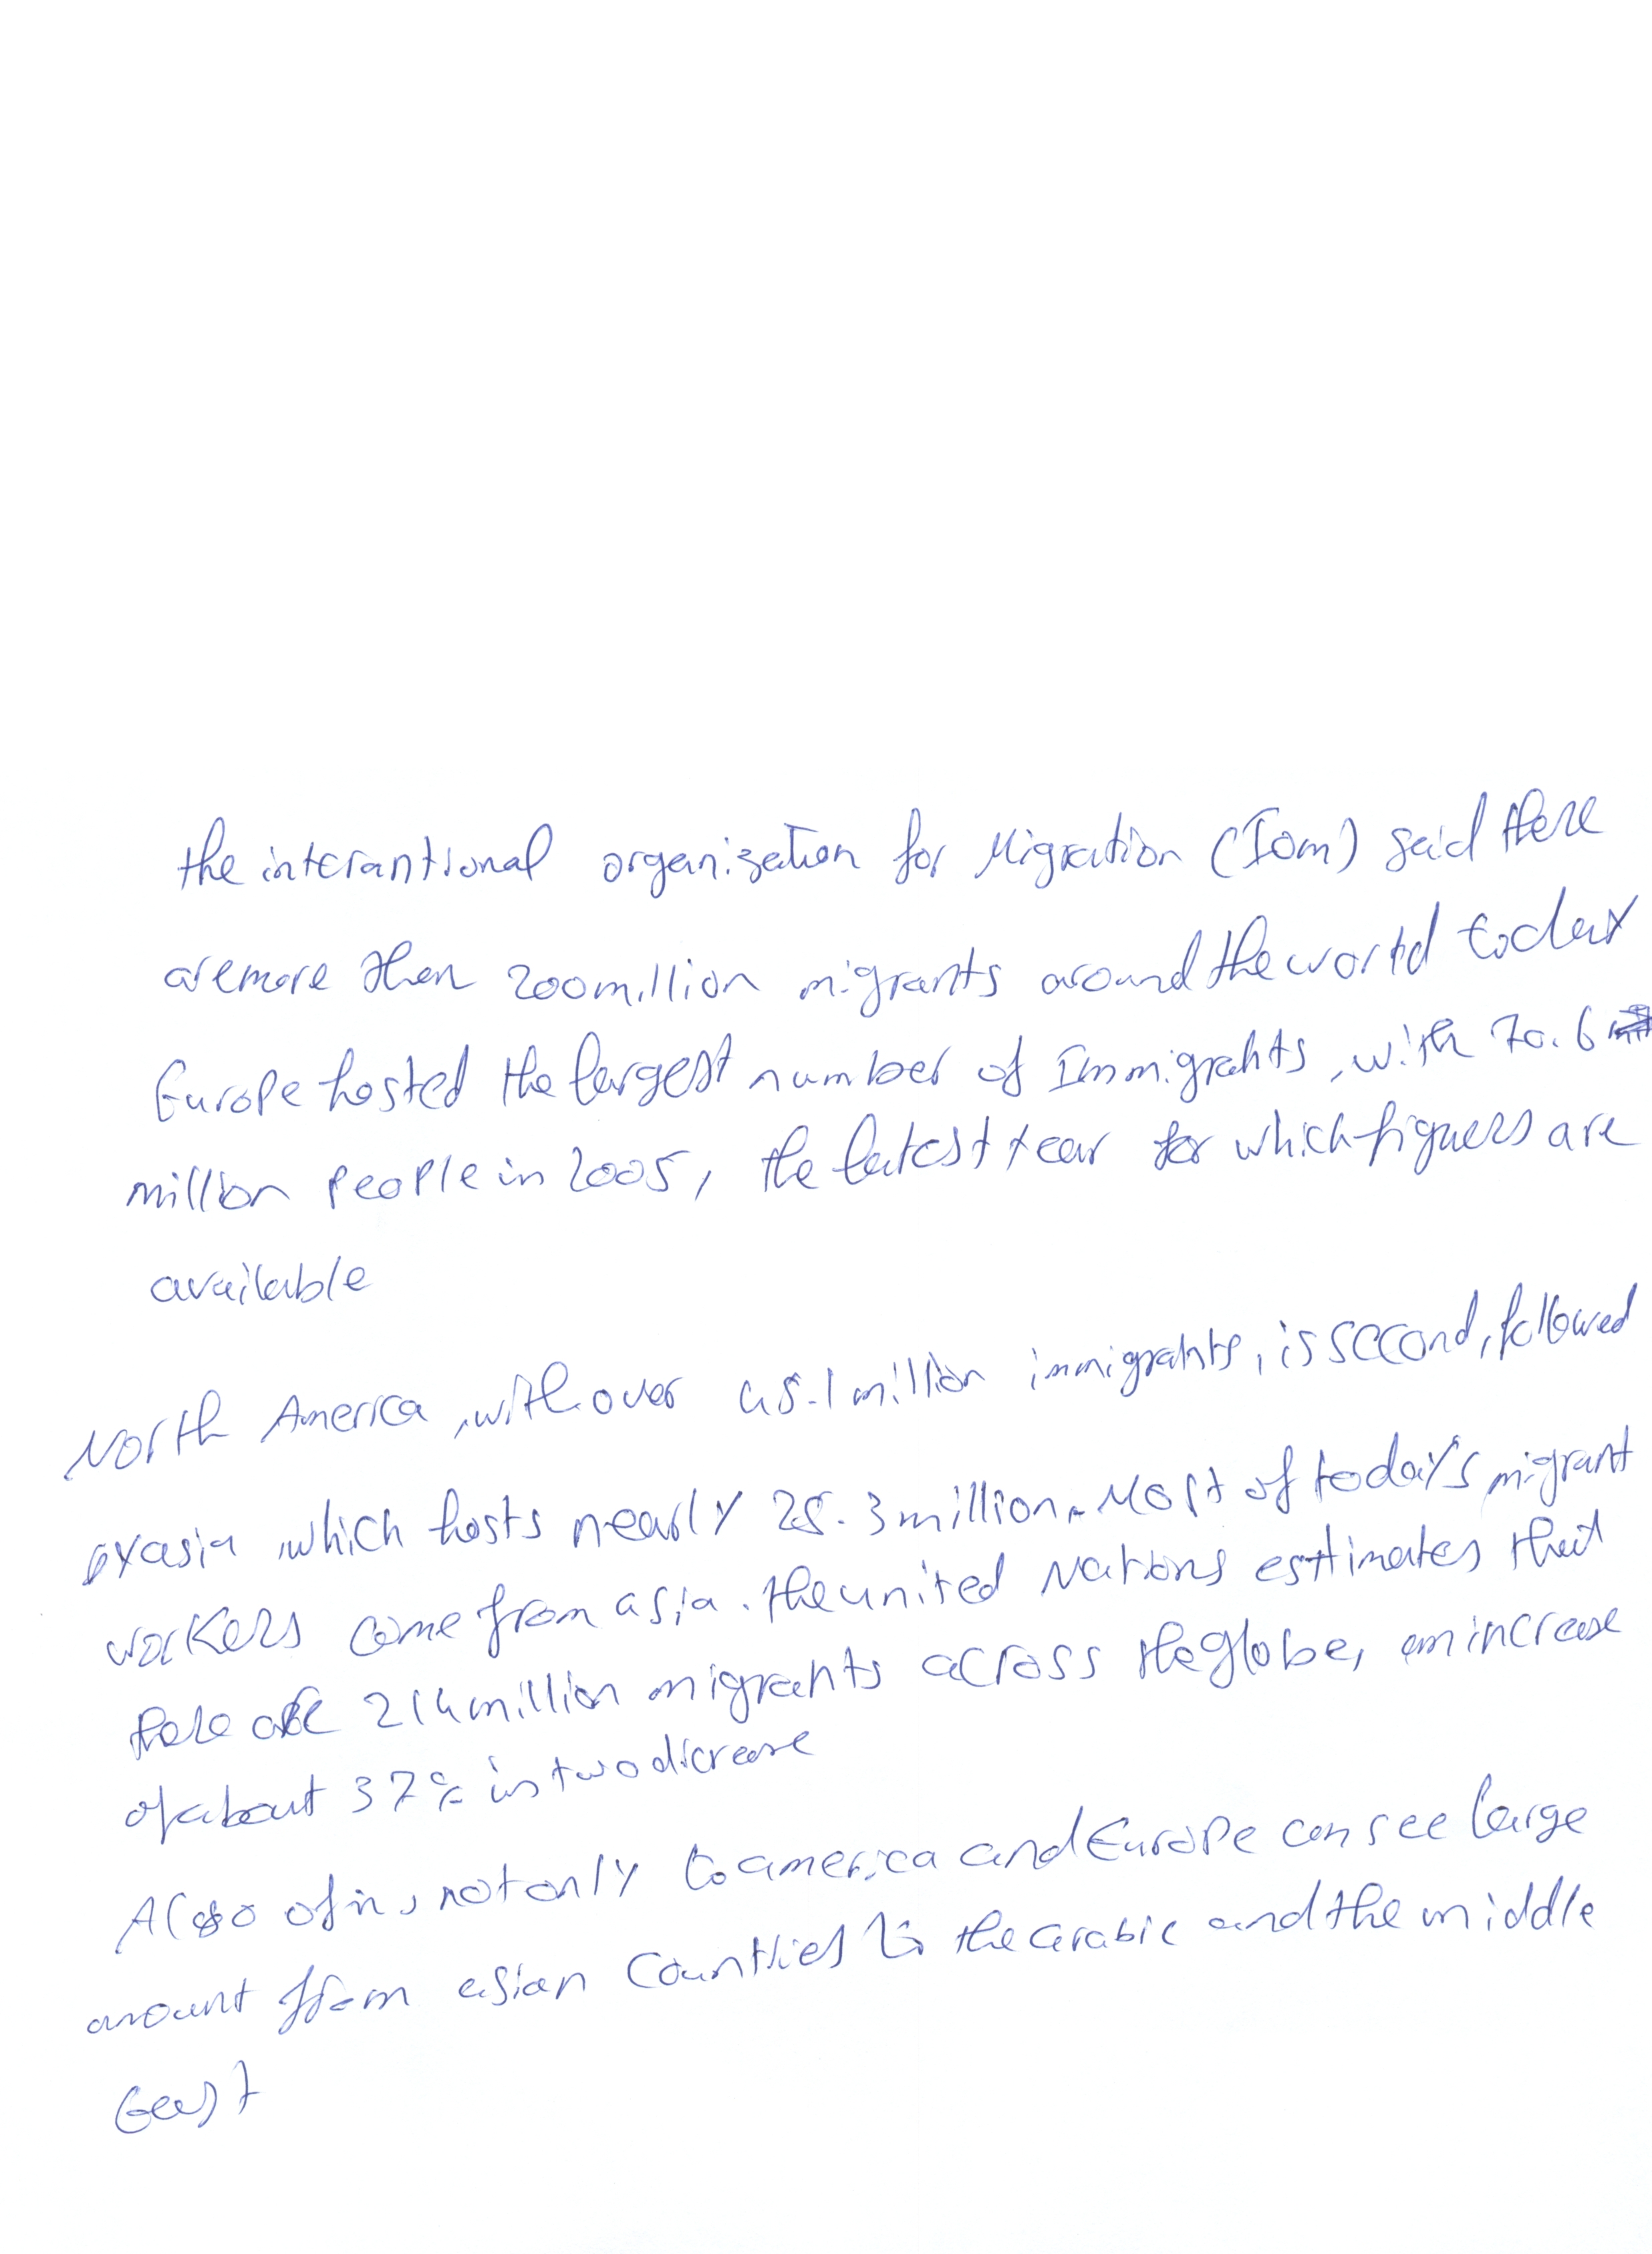 the interantional organization for Migration (Iom) said there
are more then 200 million migrants around the world today
Europe hosted the largest number of Immigrants, with 70.6
million people in 2005, the latest year for which figuers are
available
North America, with over 45.1 million immigrants, is second, followed
by asia, which hosts nearly 25.3 million. Most of today's migrant
workers come from asia. the united Nations esttimates that
there are 214 million migrants across the globe, an increase
of about 37% in two dicrease
Also of in, not only to america and Europe can see large
amount from asian Countries to the arabic and the middle
East